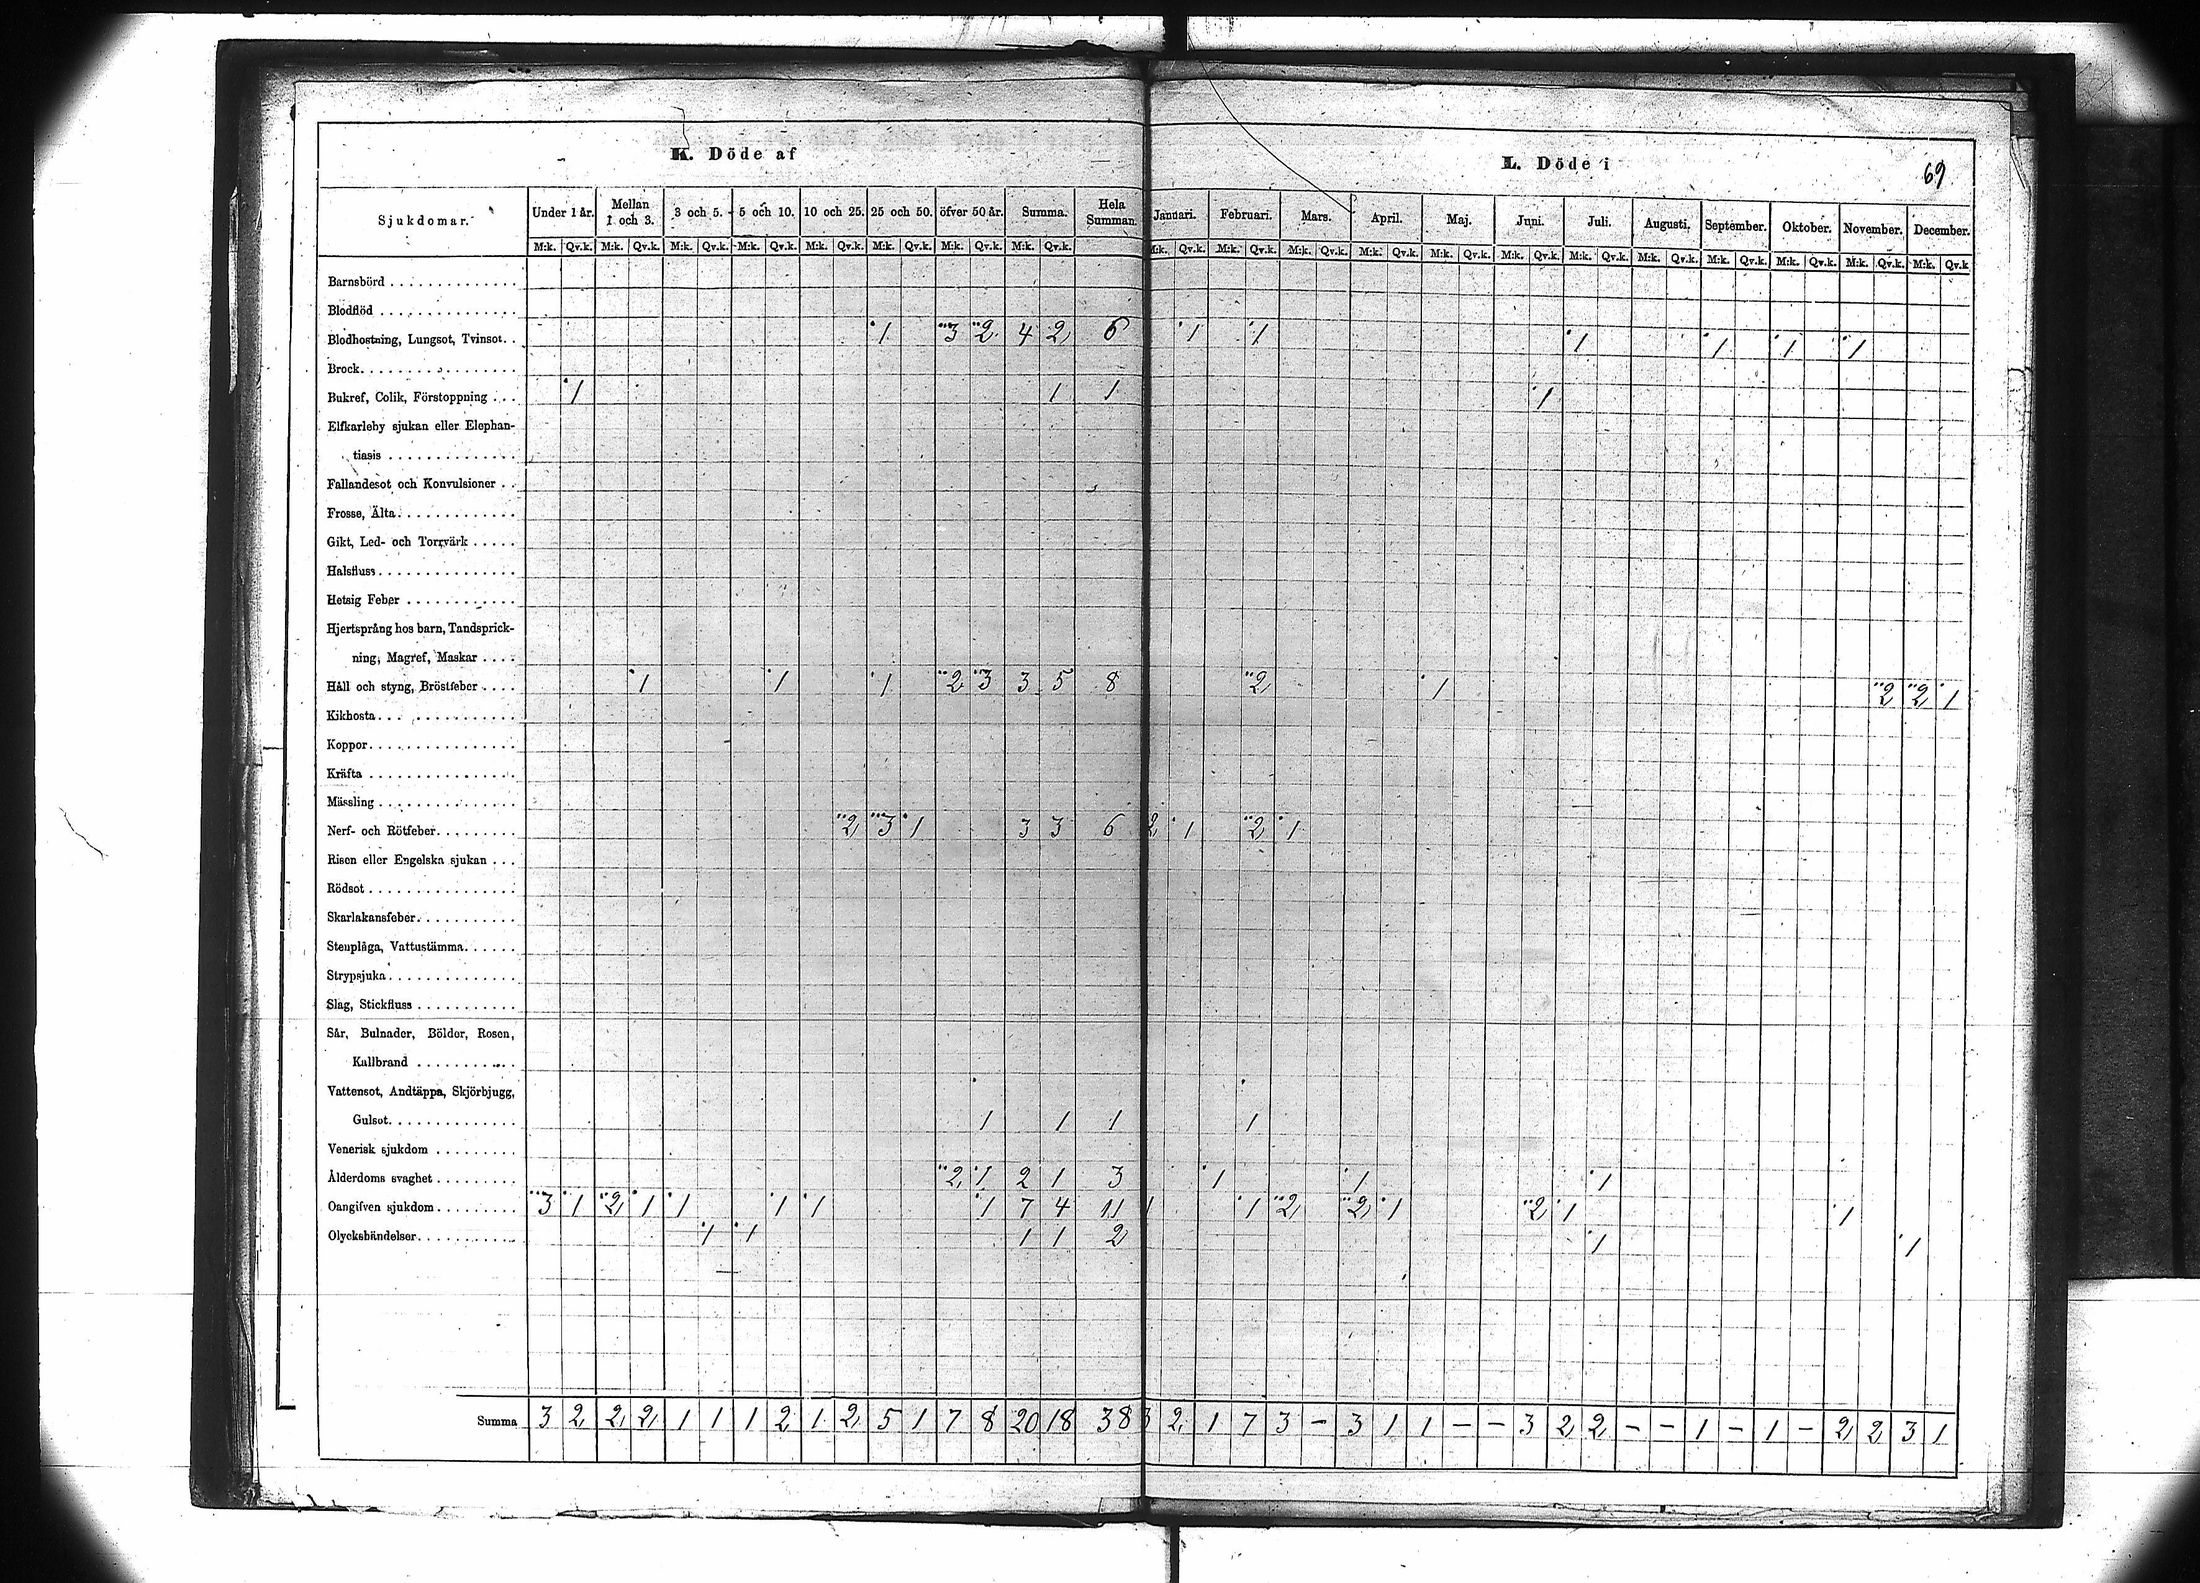 K. Döde af
L. Döde i
69
Sjukdomar. Under 1 år. Mellan 1 och 3. 3 och 5. 5 och 10. 10 och 25. 25 och 50. öfver 50 år. Summa. Hela Summan. Januari. Februari. Mars. April. Maj. Juni. Juli. Augusti. September. Oktober. November. December.
M:k. Qv.k. M:k. Qv.k. M:k. Qv.k. M:k. Qv.k. M:k. Qv.k. M:k. Qv.k. M:k. Qv.k. M:k. Qv.k. M:k. Qv.k. M:k. Qv.k. M:k. Qv.k. M:k. Qv.k. M:k. Qv.k. M:k. Qv.k. M:k. Qv.k. M:k. Qv.k. M:k. Qv.k. M:k. Qv.k. M:k. Qv.k. M:k. Qv.k
Barnsbörd
Blodflöd
Blodhostning, Lungsot, Tvinsot. 1 3 2 4 2 6 1 1 1 1 1 1
Brock
Bukref, Colik, Förstoppning 1 1 1 1
Elfkarleby sjukan eller Elephan-
tiasis
Fallandesot och Konvulsioner
Frosse, Älta
Gikt, Led- och Torrvärk
Halsfluss
Hetsig Feber
Hjertsprång hos barn, Tandsprick-
ning, Magref, Maskar
Håll och styng, Bröstfeber 1 1 1 2 3 3 5 8 2 1 2 2 1
Kikhosta
Koppor
Kräfta
Mässling
Nerf- och Rötfeber 2 3 1 3 3 6 2 1 2 1
Risen eller Engelska sjukan
Rödsot
Skarlakansfeber
Stenplåga, Vattustämma
Strypsjuka
Slag, Stickfluss
Sår, Bulnader, Bölder, Rosen,
Kallbrand
Vattensot, Andtäppa, Skjörbjugg,
Gulsot 1 1 1 1
Venerisk sjukdom
Ålderdoms svaghet 2 1 2 1 3 1 1 1
Oangifven sjukdom 3 1 2 1 1 1 1 1 7 4 11 1 1 2 2 1 2 1 1
Olyckshändelser 1 1 1 1 2 1 1
Summa 3 2 2 2 1 1 1 2 1 2 5 1 7 8 20 18 38 3 2 1 7 3 – 3 1 1 – – 3 2 2 – – 1 – 1 – 2 2 3 1